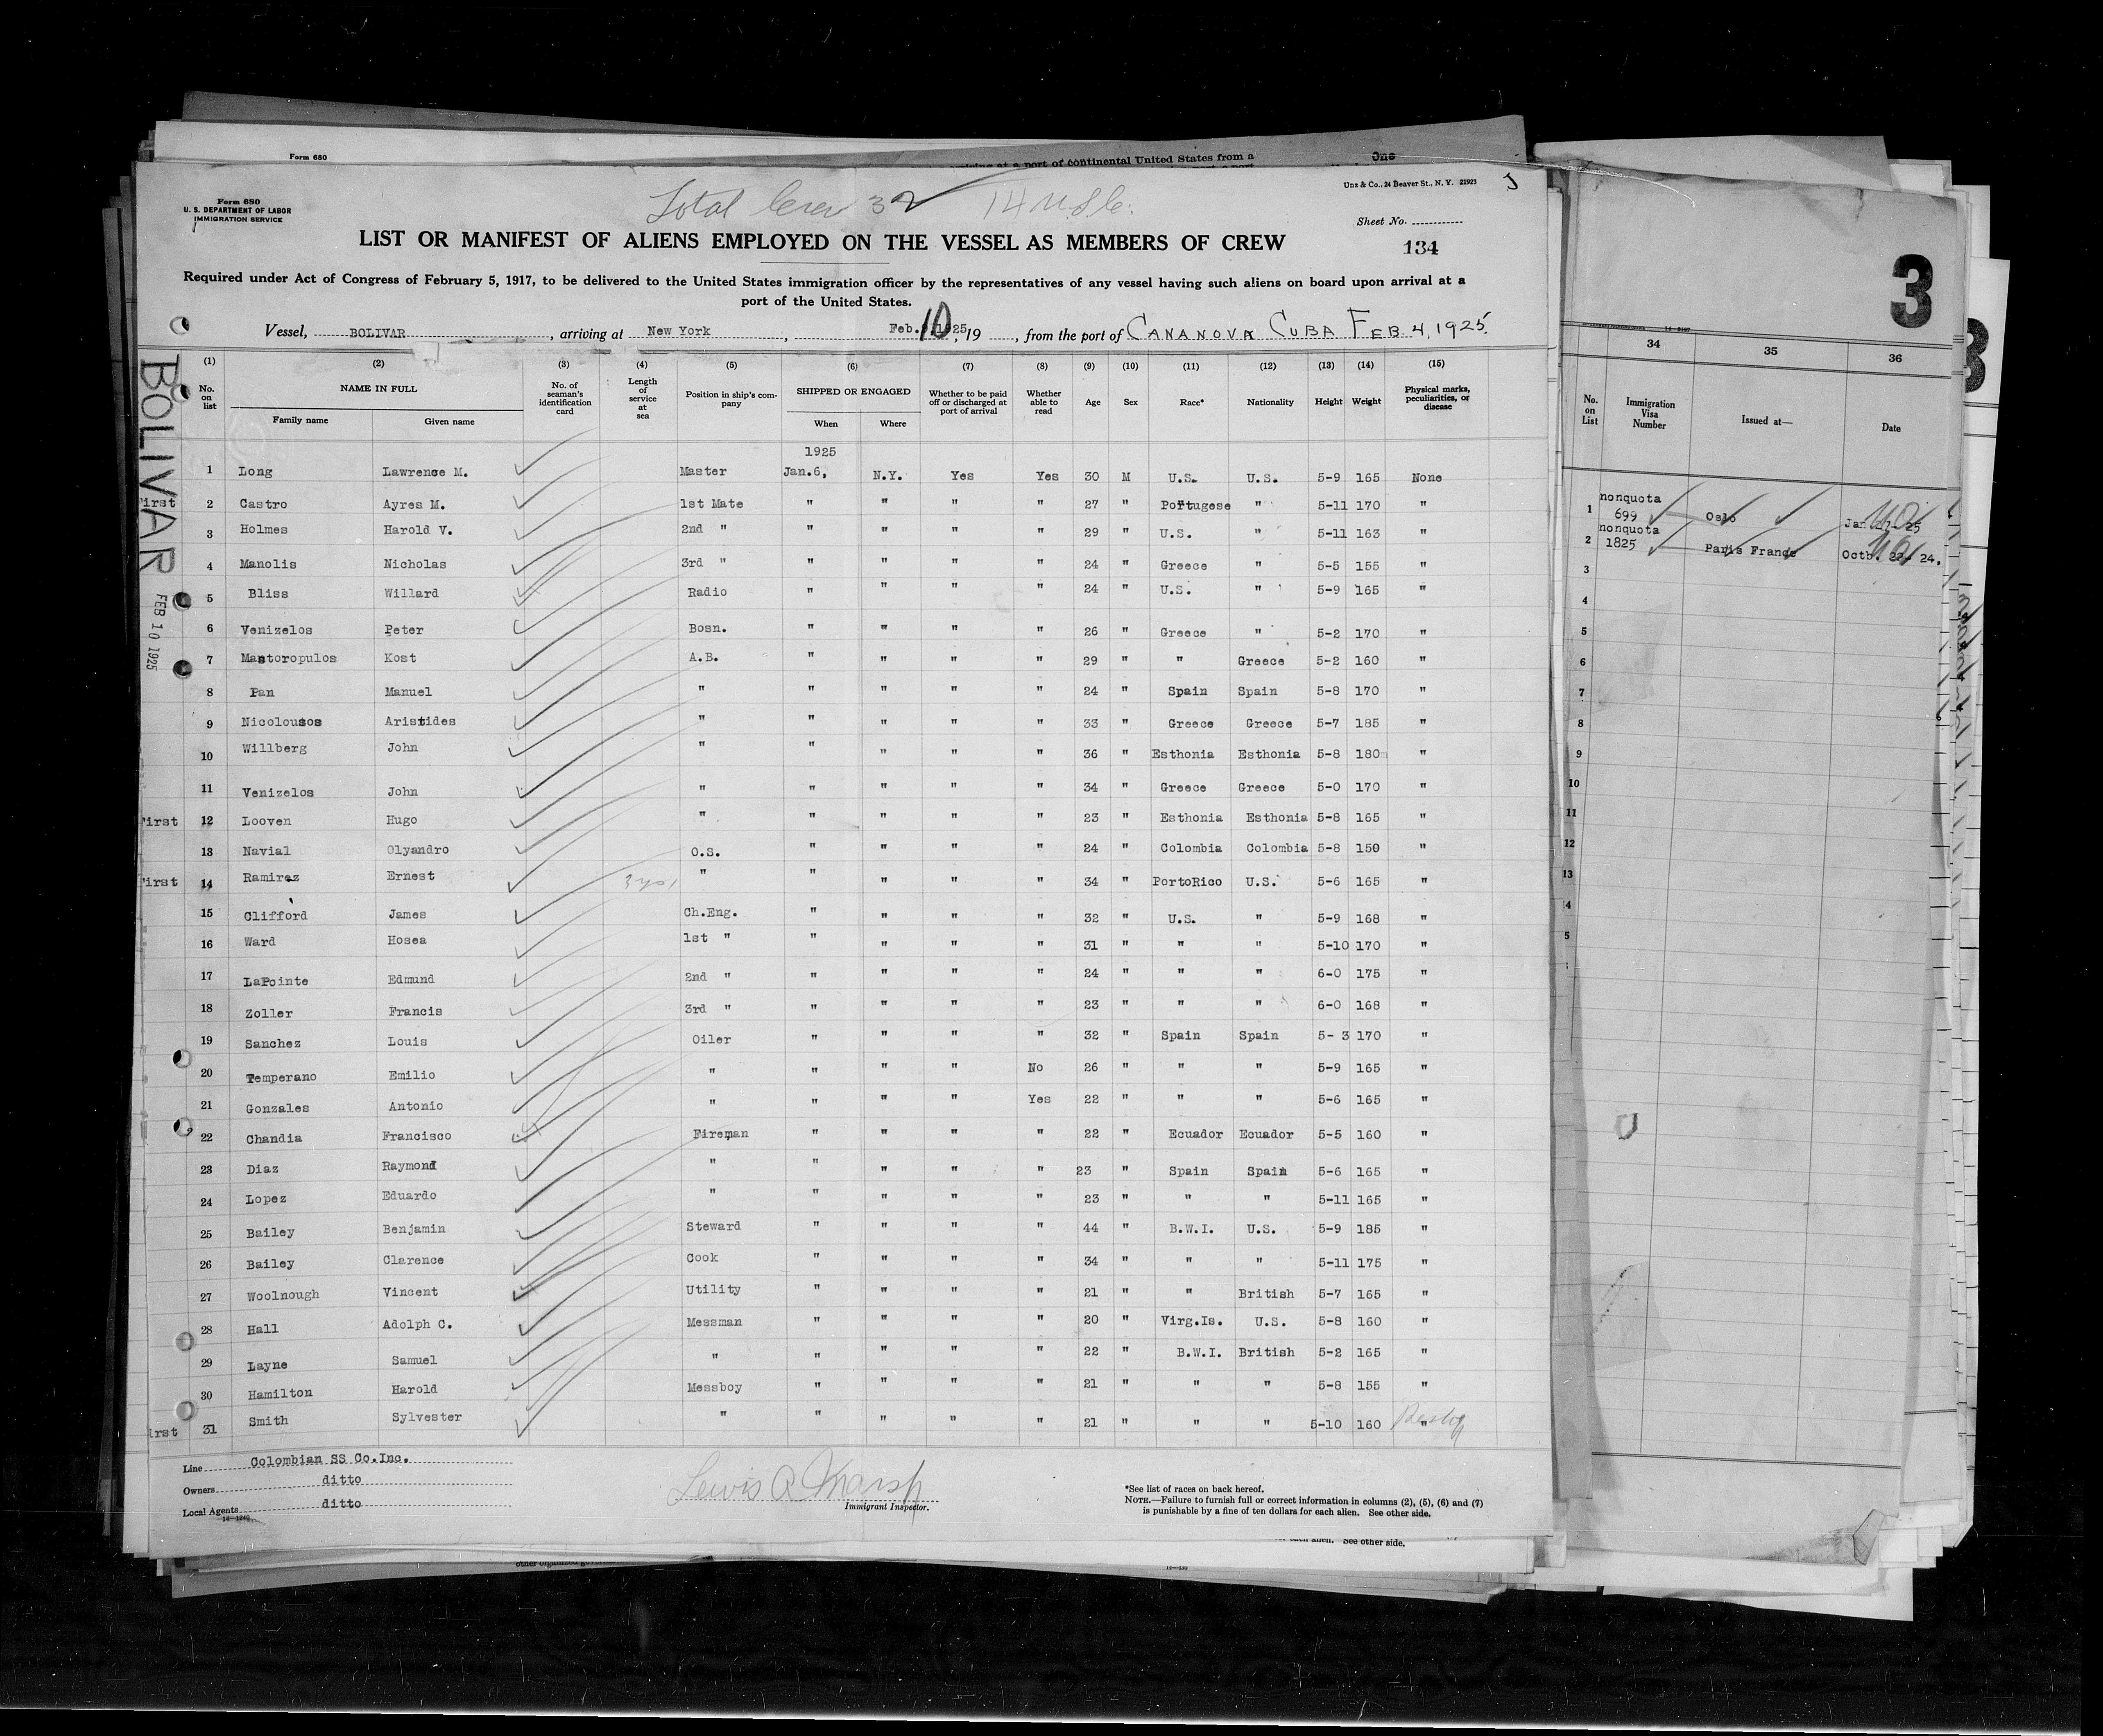 Form 680
continental United States from a
One
Form 680
U. S. DEPARTMENT OF LABOR
IMMIGRATION SERVICE
Total Crew 32 14 U S C.
Unz & Co., 24 Beaver St., N. Y. 21921
Sheet No.
134
LIST OR MANIFEST OF ALIENS EMPLOYED ON THE VESSEL AS MEMBERS OF CREW
Required under Act of Congress of February 5, 1917, to be delivered to the United States immigration officer by the representatives of any vessel having such aliens on board upon arrival at a
port of the United States.
Vessel, BOLIVAR, arriving at New York, Feb. 10 1925, 19, from the port of CANANOVA CUBA FEB 4, 1925.
BOLIVAR
FEB 10 1925
(1) (2) (3) (4) (5) (6) (7) (8) (9) (10) (11) (12) (13) (14) (15)
No. on list NAME IN FULL No. of seaman's identification card Length of service at sea Position in ship's company SHIPPED OR ENGAGED Whether to be paid off or discharged at port of arrival Whether able to read Age Sex Race* Nationality Height Weight Physical marks, peculiarities, or disease
Family name Given name When Where
1925
1 Long Lawrence M. Master Jan.6, N.Y. Yes Yes 30 M U.S. U.S. 5-9 165 None
First 2 Castro Ayres M. 1st Mate " " " " 27 " Portugese " 5-11 170 "
3 Holmes Harold V. 2nd " " " " " 29 " U.S. " 5-11 163 "
4 Manolis Nicholas 3rd " " " " " 24 " Greece " 5-5 155 "
5 Bliss Willard Radio " " " " 24 " U.S. " 5-9 165 "
6 Venizelos Peter Bosn. " " " " 26 " Greece " 5-2 170 "
7 Mastoropulos Kost A.B. " " " " 29 " " Greece 5-2 160 "
8 Pan Manuel " " " " " 24 " Spain Spain 5-8 170 "
9 Nicolousos Aristides " " " " " 33 " Greece Greece 5-7 185 "
10 Willberg John " " " " " 36 " Esthonia Esthonia 5-8 180 "
11 Venizelos John " " " " " 34 " Greece Greece 5-0 170 "
First 12 Looven Hugo " " " " " 23 " Esthonia Esthonia 5-8 165 "
13 Navial Olyandro O.S. " " " " 24 " Colombia Colombia 5-8 150 "
First 14 Ramirez Ernest 3 yrs " " " " " 34 " PortoRico U.S. 5-6 165 "
15 Clifford James Ch.Eng. " " " " 32 " U.S. " 5-9 168 "
16 Ward Hosea 1st " " " " " 31 " " " 5-10 170 "
17 LaPointe Edmund 2nd " " " " " 24 " " " 6-0 175 "
18 Zoller Francis 3rd " " " " " 23 " " " 6-0 168 "
19 Sanchez Louis Oiler " " " " 32 " Spain Spain 5- 3 170 "
20 Temperano Emilio " " " " No 26 " " " 5-9 165 "
21 Gonzales Antonio " " " " Yes 22 " " " 5-6 165 "
22 Chandia Francisco Fireman " " " " 22 " Ecuador Ecuador 5-5 160 "
23 Diaz Raymond " " " " " 23 " Spain Spain 5-6 165 "
24 Lopez Eduardo " " " " " 23 " " " 5-11 165 "
25 Bailey Benjamin Steward " " " " 44 " B.W.I. U.S. 5-9 185 "
26 Bailey Clarence Cook " " " " 34 " " " 5-11 175 "
27 Woolnough Vincent Utility " " " " 21 " " British 5-7 165 "
28 Hall Adolph C. Messman " " " " 20 " Virg.Is. U.S. 5-8 160 "
29 Layne Samuel " " " " " 22 " B.W.I. British 5-2 165 "
30 Hamilton Harold Messboy " " " " 21 " " " 5-8 155 "
31 Smith Sylvester " " " " " 21 " " " 5-10 160 "
Line Colombian SS Co.Inc.
Owners ditto
Local Agents ditto
14-1240
Lewis A. Marsh
Immigrant Inspector.
*See list of races on back hereof.
NOTE.—Failure to furnish full or correct information in columns (2), (5), (6) and (7)
is punishable by a fine of ten dollars for each alien. See other side.
each alien. See other side.
3
34 35 36
No. on List Immigration Visa Number Issued at— Date
1 nonquota 699 Oslo Jan 25
2 nonquota 1825 Paris France Octb. 22- 24.
3
4
5
6
7
8
9
10
11
12
13
14
5